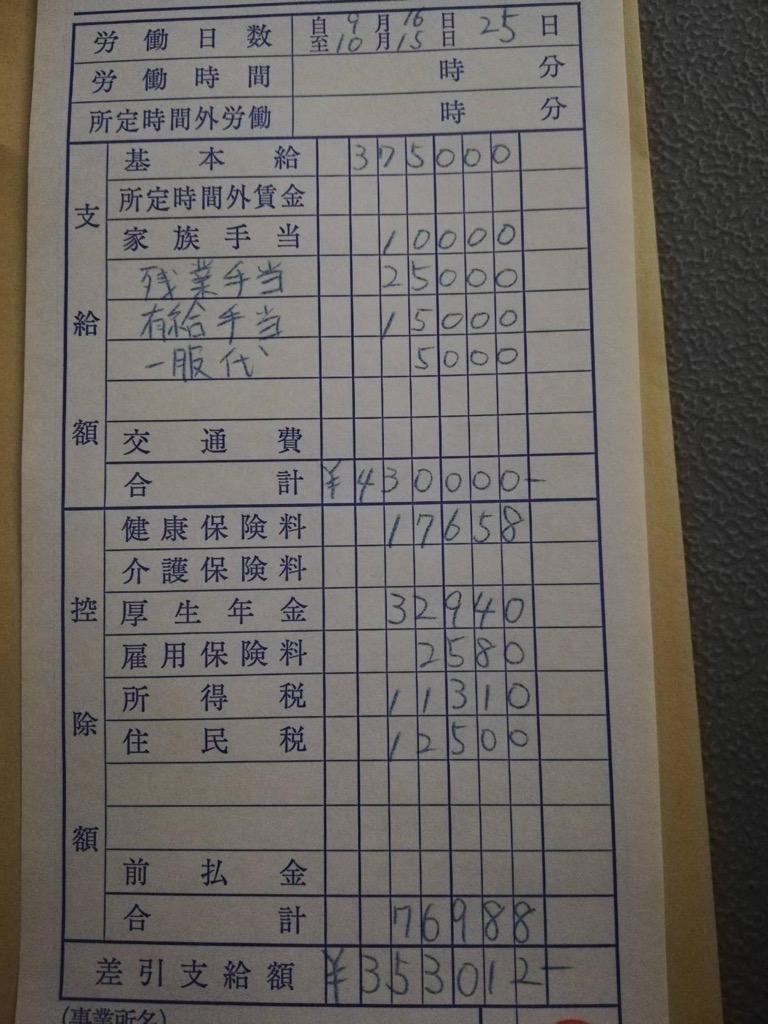 労働日数 自 9月16日 至 10月15日 25日
労働時間 時 分
所定時間外労働 時 分
支給額
基本給 375000
所定時間外賃金
家族手当 10000
残業手当 25000
有給手当 15000
一服代 5000
交通費
合計 ¥430000-
控除額
健康保険料 17658
介護保険料
厚生年金 32940
雇用保険料 2580
所得税 11310
住民税 12500
前払金
合計 76988
差引支給額 ¥353012-
(事業所名)